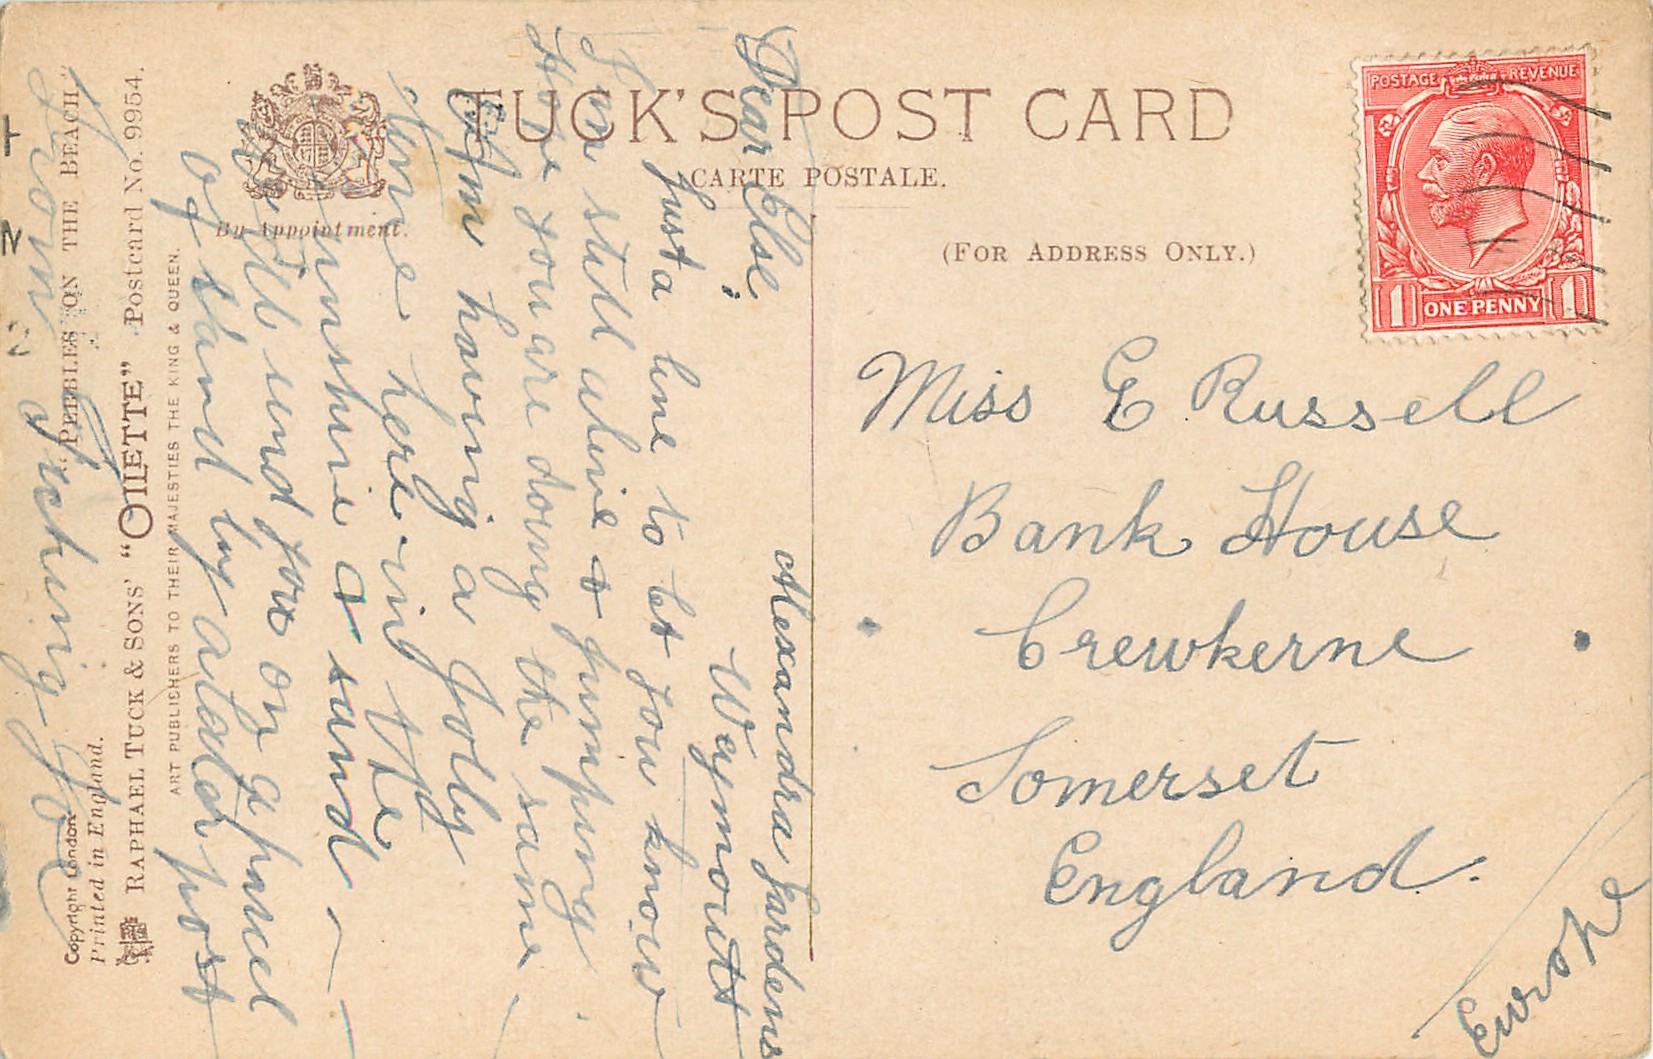 TUCK'S POST CARD
CARTE POSTALE.
(FOR ADDRESS ONLY.)
By Appointment.
POSTAGE REVENUE
1 ONE PENNY 1
Alexandra Gardens
Weymouth
Dear Else
Just a line to let you know
I'm still alive & jumping.
Hope you are doing the same.
Am having a jolly
time here in the
sunshine & sand
Will send you on a parcel
of sand by a later post
From
Miss E Russell
Bank House
Crewkerne
Somerset
England.
Europe
ART PUBLISHERS TO THEIR MAJESTIES THE KING & QUEEN.
RAPHAEL TUCK & SONS' "OILETTE" Postcard No. 9954.
"PEBBLES ON THE BEACH."
Copyright London
Printed in England.